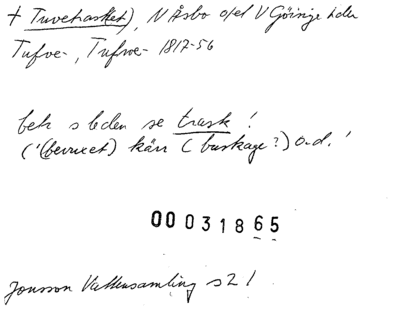 † Tuvetrasket), N Åsbo o/el V Göinge hdr
Tufve-, Tufvve- 1817-56
bet s leden se trask!
('(bevuxet) kärr (buskage?) o.d.'
00031865
Jonsson Vattensamling s 21